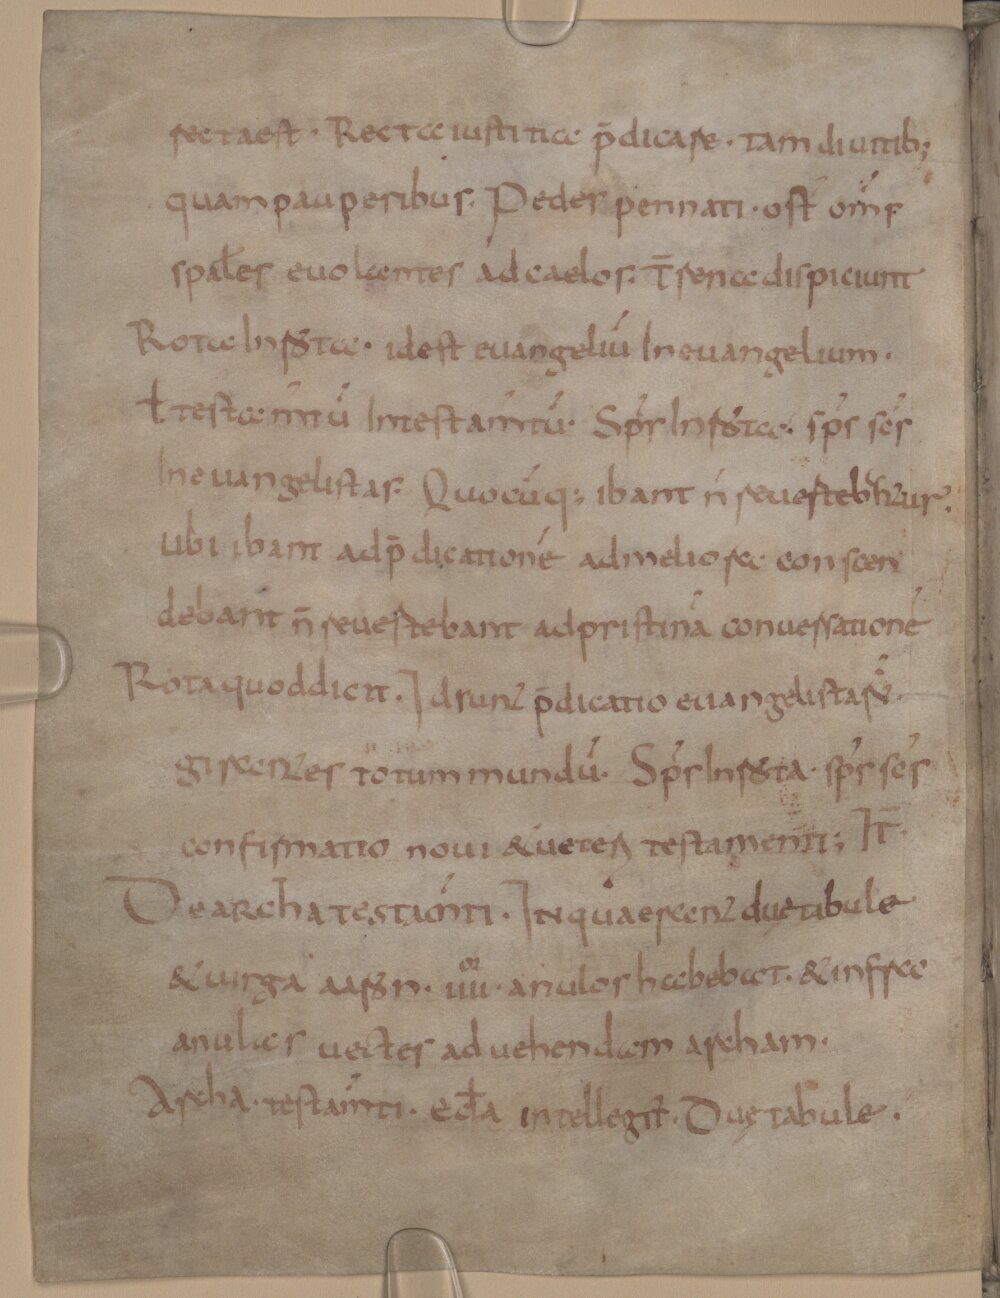 recta est · Recta iustitia p̄dicare · tam diuitib;
quam pauperibus · Pedes pennati · ost om̄s
spał̄es euolantes ad caelos · t̄rena dispiciunt
Rota In rota · id est euangeliū In euangelium ·
ł testam̄tū In testam̄tū · Sps̄ In rota · sps̄ sc̄s
In euangelistas · Quocūq; ibant n̄ reuertebantur ·
ubi ibant ad p̄dicationē ad meliora conscen
debant n̄ reuertebant ad pristinā conuersationē
Rota quod dicit · Id sunt p̄dicatio euangelistarū ·
girantes totum mundū · Sps̄ In rota · sps̄ sc̄s
confirmatio noui & ueteris testamenti; It̄
De archa testam̄ti · In qua erant duę tabule
& uirga aaron · iiii · anulos habebat · & infra
anulos uectes ad uehendam archam ·
Archa · testam̄ti · ecła intellegit̄ · Duę tabule ·